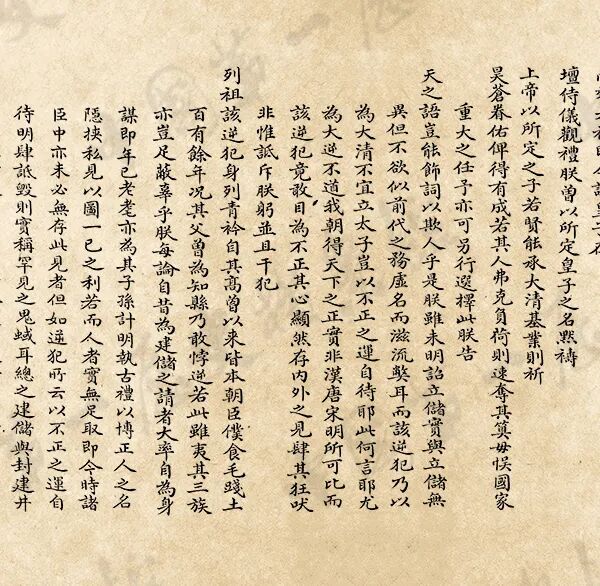 壇侍儀觀禮朕曾以所定皇子之名默禱
上帝以所定之子若賢能承大清基業則祈
昊蒼眷佑俾得有成若其人弗克負荷則速奪其筭毋悮國家
重大之任予亦可另行選擇此朕告
天之語豈能飾詞以欺人乎是朕雖未明詔立儲實與立儲無
異但不欲似前代之務虛名而滋流獘耳而該逆犯乃以
為大清不宜立太子豈以不正之運自待耶此何言耶尤
為大逆不道我朝得天下之正實非漢唐宋明所可比而
該逆犯竟敢目為不正其心顯然存內外之見肆其狂吠
非惟詆斥朕躬並且干犯
列祖該逆犯身列青衿自其高曾以來皆本朝臣僕食毛踐土
百有餘年况其父曾為知縣乃敢悖逆若此雖夷其三族
亦豈足蔽辜乎朕每論自昔為建儲之請者大率自為身
謀即年已老耄亦為其子孫計明執古禮以博正人之名
隱挟私見以圖一已之利若而人者實無足取即今時諸
臣中亦未必無存此見者但如逆犯所云以不正之運自
待明肆詆毀則實稱罕見之鬼蜮耳總之建儲與封建井